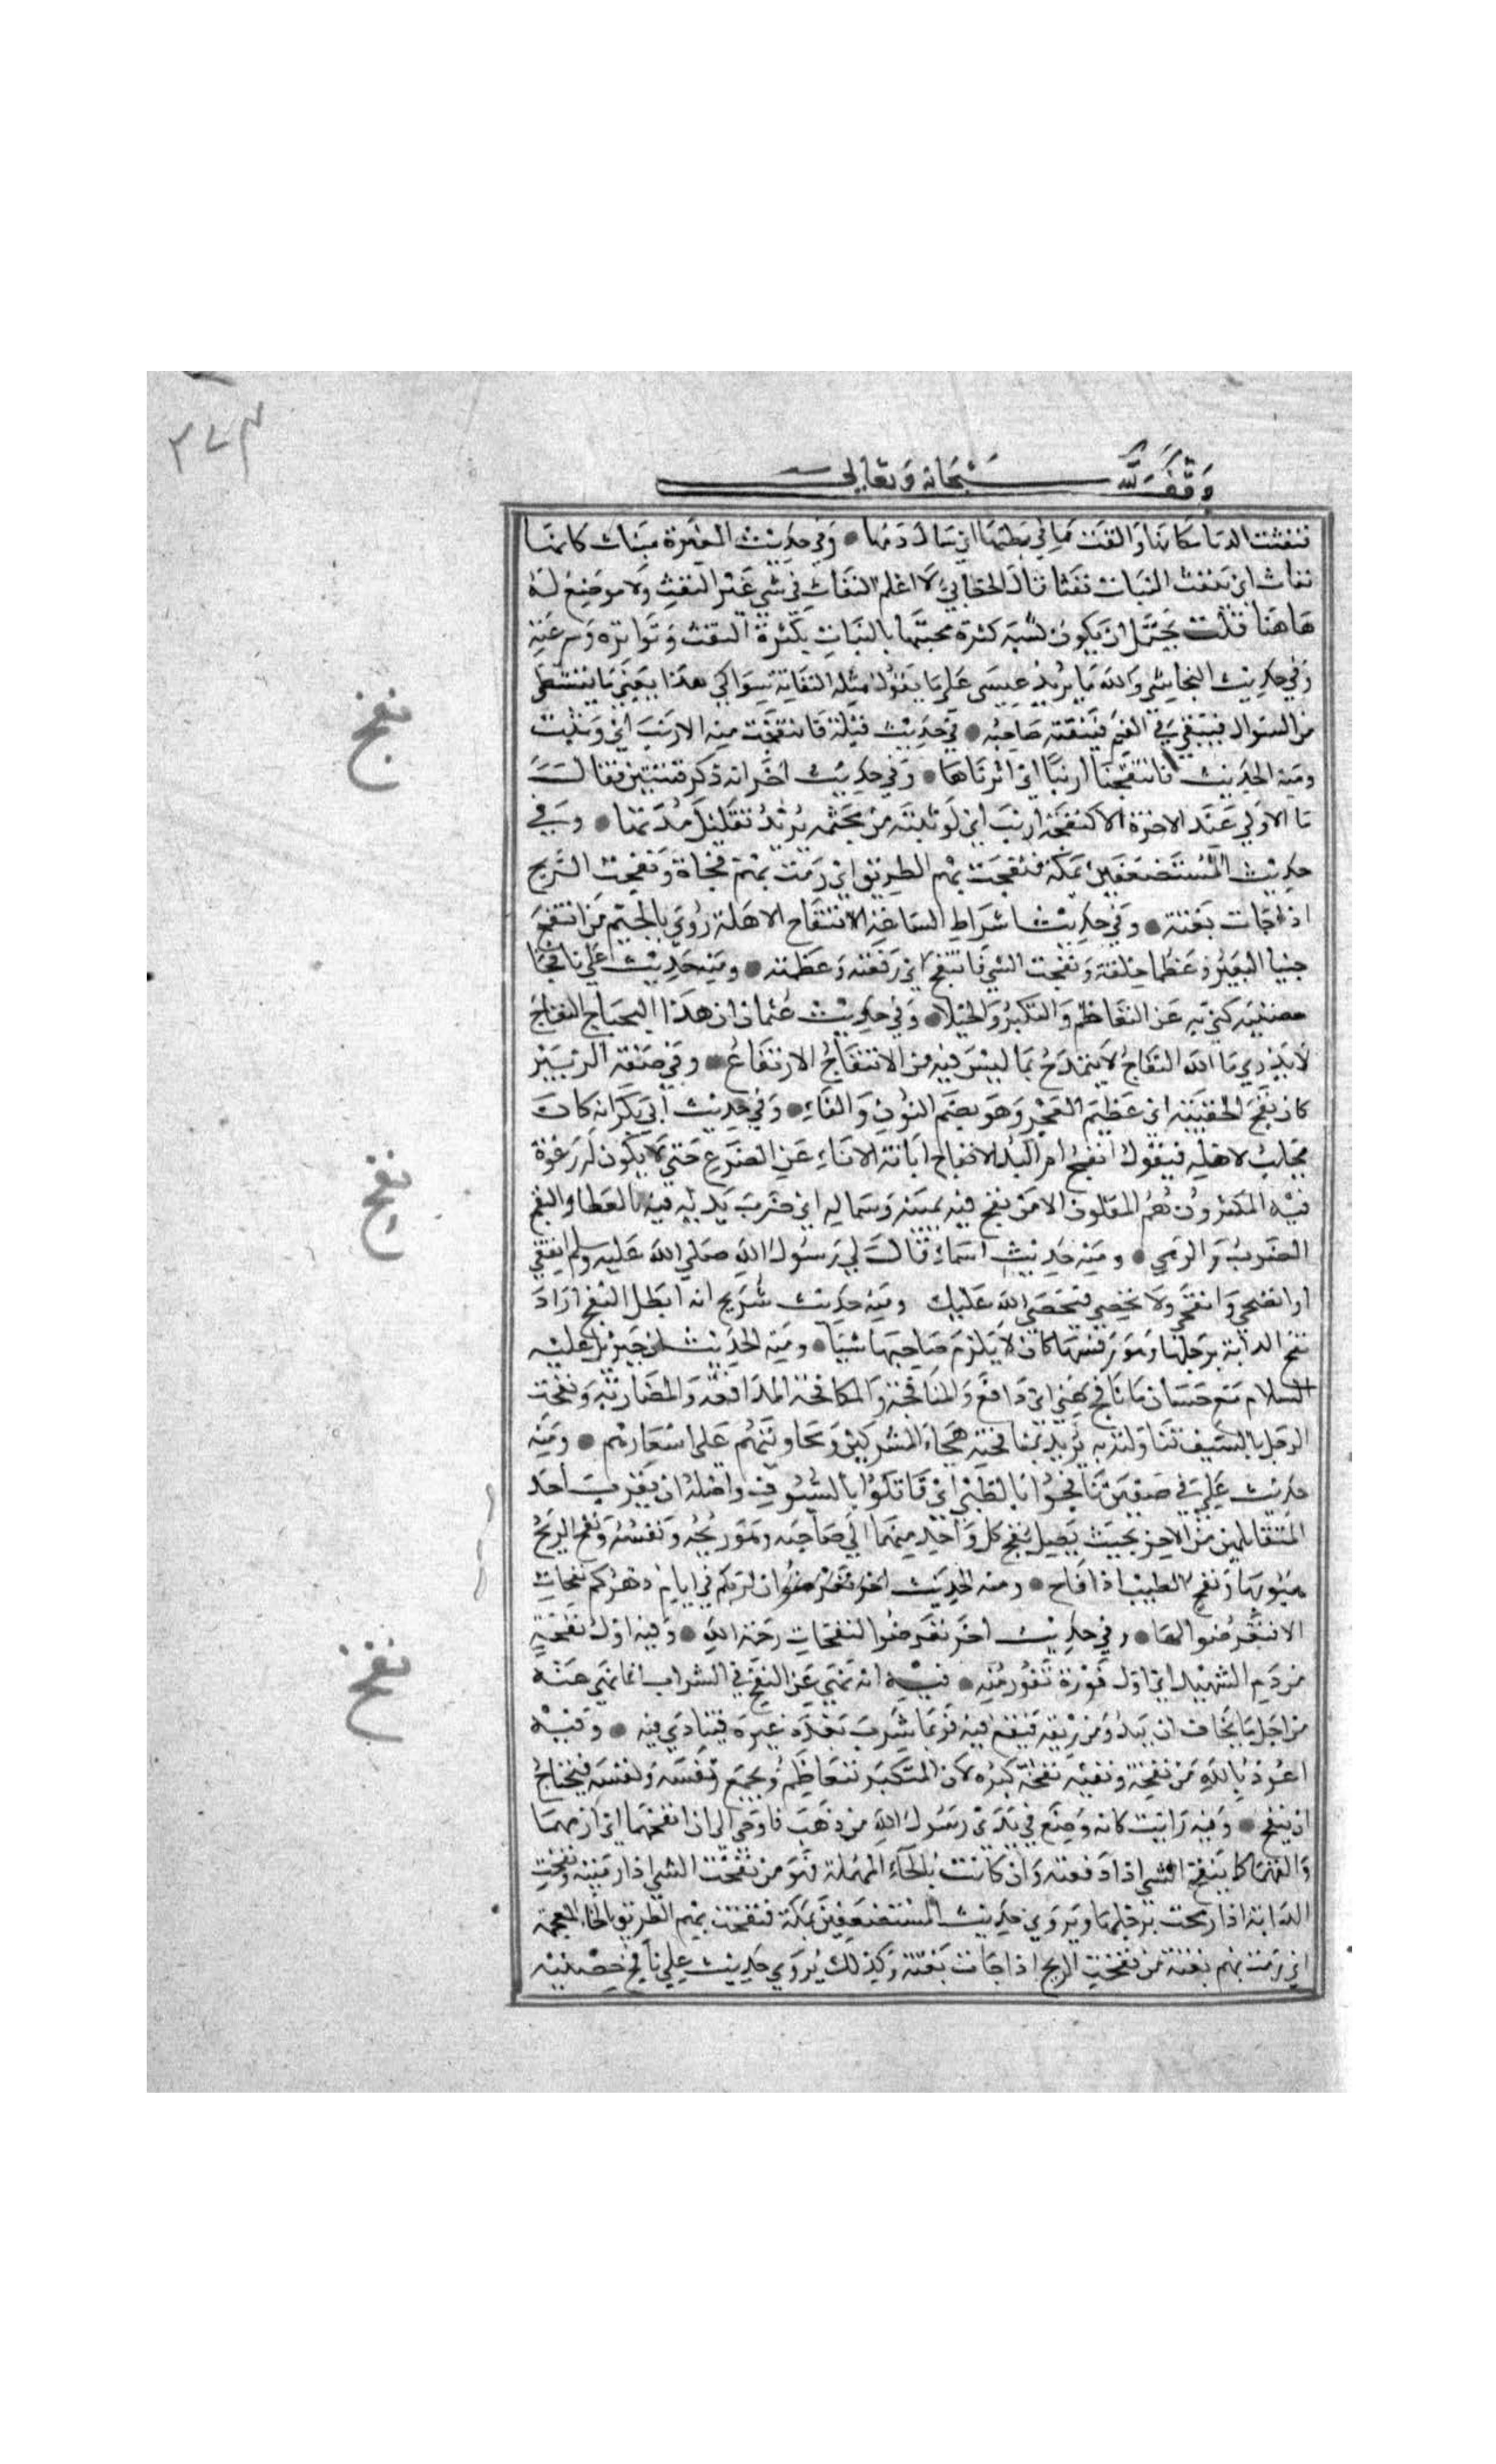 وقف لله سبحانه وتعالى
فنفثت الدما مكانها والقت ما في بطنها اي سال دمها وفي حديث المغيرة مبنات كانها
نفاث اي تنفث البنات نفثا قال الخطابي لا اعلم النفاث في شي غير النفث ولا موضع له
هاهنا قلت يحتمل ان يكون شبه كثرة مجيئها بالبنات بكثرة النفث وتواتره وسرعته
وفي حديث النجاشي والله ما يزيد عيسى على ما يقول مثل النفاثة سواكي هذا يعني ما يتشظى
من السواك فيبقى في الفم فينفثه صاحبه في حديث قيلة فانتفجت منه الارنب اي وثبت
ومنه الحديث فانتفجنا ارنبا اي اثرناها وفي حديث اخر انه ذكر فتنتين فقال
ما الاولى عند الاخرة الا كنفجة ارنب اي كوثبته من مجثمه يريد تقليل مدتها وفي
حديث المستضعفين بمكة فنفجت بهم الطريق اي رمت بهم فجاة ونفجت الريح
اذا جات بغتة وفي حديث اشراط الساعة انتفاج الاهلة روي بالجيم من انتفج
جنبا البعير وعظما خلقة ونفجت الشي فانتفج اي رفعته وعظمته ومنه حديث علي نافجا
حضنيه كنى به عن التعاظم والتكبر والخيلا وفي حديث عثمان ان هذا البجباج النفاج
لا يدري ما الله النفاج لا يتمدح بما ليس فيه من الانتفاج الارتفاع وفي صفة الزبير
كان نفج الحقيبة اي عظيم العجز وهو بضم النون والفاء وفي حديث ابي بكر انه كان
يحلب لاهله فيقول انفج ام البد الانفاج ابانة الاناء عن الضرع حتى لا يكون له رغوة
فيه المكثرون هم المقلون الا من نفح فيه يمينه وشماله اي ضرب يديه فيه بالعطا والنفح
الضرب والرمي ومنه حديث اسماء قالت لي رسول الله صلى الله عليه وسلم انفقي
او انضحي وانفحي ولا تحصي فيحصي الله عليك ومنه حديث شريح انه ابطل النفح اراد
نفح الدابة برجلها وهو رفسها كان لا يلزم صاحبها شيا ومنه الحديث ان جبريل عليه
السلام مع حسان ما نافح عني اي دافع والمنافحة والمكافحة المدافعة والمضاربة ونفحت
الرجل بالسيف تناولته به يريد بمنافحته هجاء المشركين ومجاوبتهم على اشعارهم ومنه
حديث علي في صفين نافحوا بالظبى اي قاتلوا بالسيوف واصله ان يقرب احد
المتقاتلين من الاخر بحيث يصل نفح كل واحد منهما الى صاحبه وهو ريحه ونفسه ونفح الريح
هبوبها ونفح الطيب اذا فاح ومنه الحديث اخر تعرضوا ان لربكم في ايام دهركم نفحات
الا فتعرضوا لها وفي حديث اخر تعرضوا لنفحات رحمة الله وفيه اول نفحة
من دم الشهيد اي اول فورة تفور منه فيه انه نهى عن النفخ في الشراب انما نهى عنه
من اجل ما يخاف ان يبدر من ريقه فيقع فيه فربما شرب بعده غيره فيتاذى فيه وفيه
اعوذ بالله من نفخه ونفثه نفخه كبره لان المتكبر يتعاظم ويجمع نفسه ونفسه فيحتاج
ان ينفخ وفيه رايت كانه وضع في يدي رسول الله من ذهب فاوحي الي ان انفخهما اي ارمهما
والقهما كما ينفخ الشي اذا دفعته وان كانت بالحاء المهملة فهو من نفحت الشي اذا رميته ونفحت
الدابة اذا رمحت برجلها ويروى حديث المستضعفين بمكة فنفخت بهم الطريق بالخاء المعجمة
اي رمت بهم بغتة من نفخت الريح اذا جات بغتة وكذلك يروى حديث علي نافخ حضنيه
نفج
نفح
نفخ